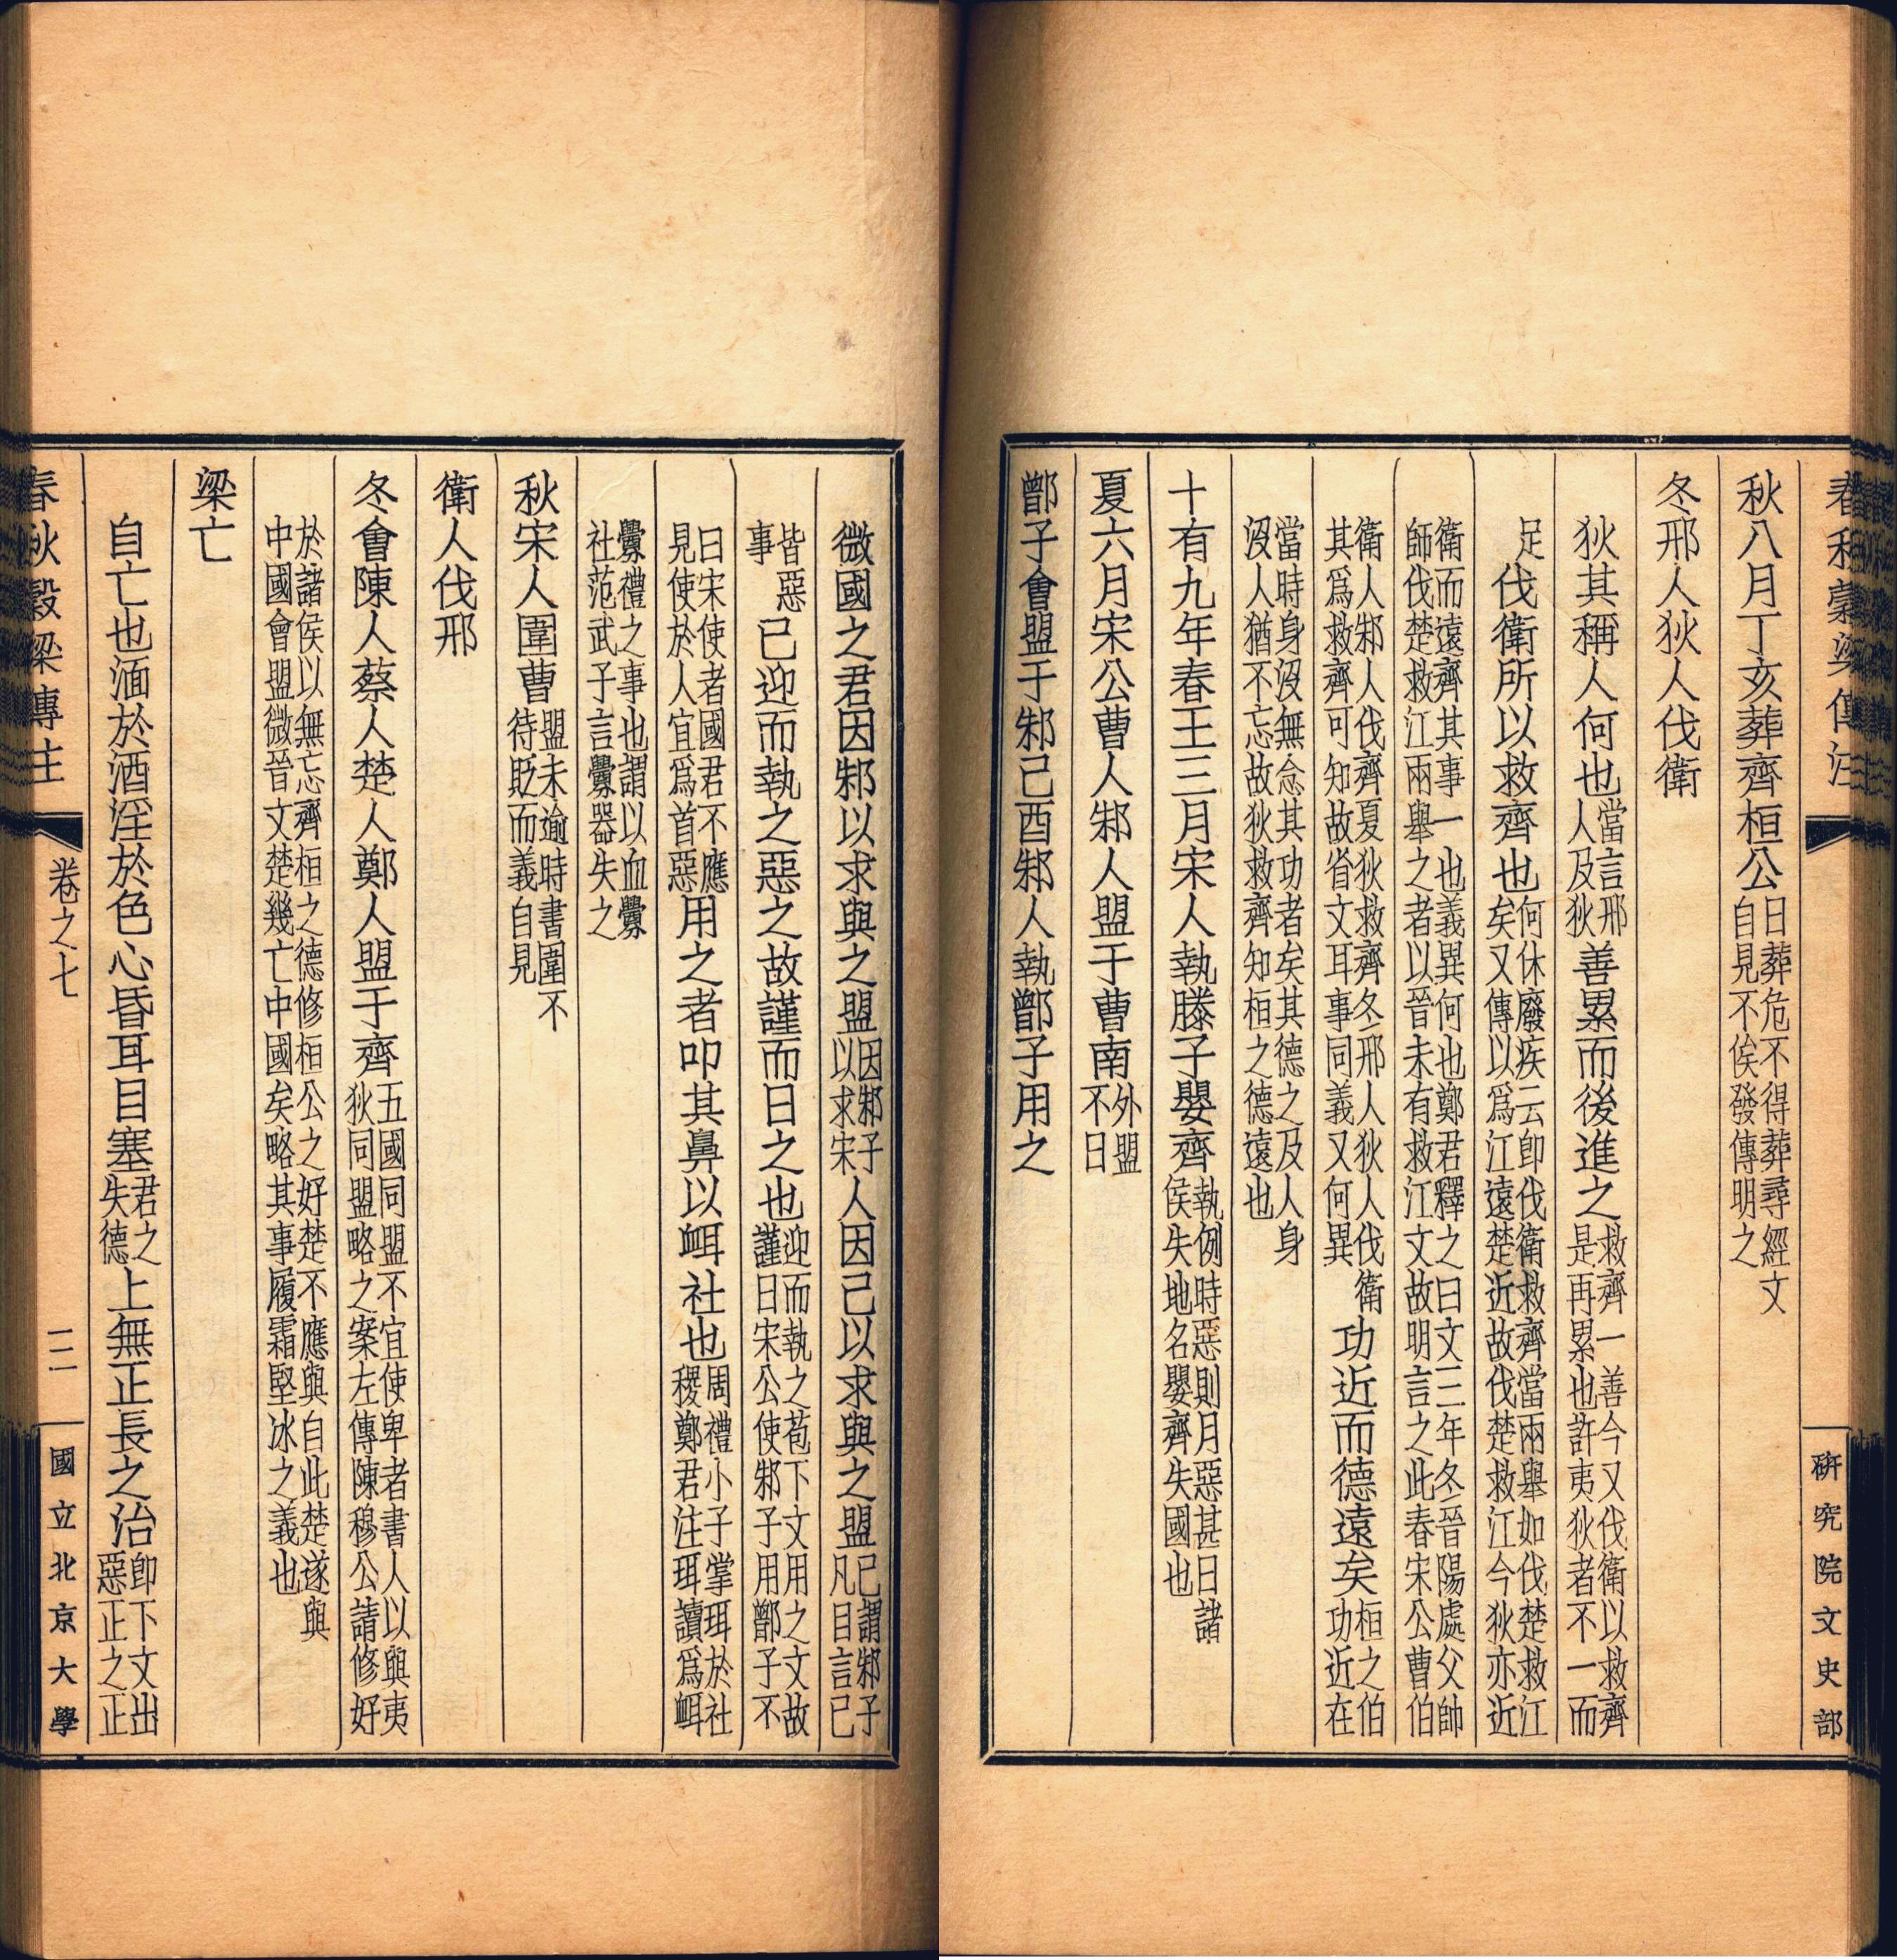 春秋穀梁傳注
研究院文史部
秋八月丁亥葬齊桓公日葬危不得葬尋經文自見不俟發傳明之
冬邢人狄人伐衛
狄其稱人何也當言邢人及狄善累而後進之救齊一善今又伐衛以救齊是再累也許夷狄者不一而
足伐衛所以救齊也何休廢疾云卽伐衛救齊當兩舉如伐楚救江矣又傳以爲江遠楚近故伐楚救江今狄亦近
衛而遠齊其事一也義異何也鄭君釋之曰文三年冬晉陽處父帥師伐楚救江兩舉之者以晉未有救江文故明言之此春宋公曹伯
衛人邾人伐齊夏狄救齊冬邢人狄人伐衛其爲救齊可知故省文耳事同義又何異功近而德遠矣桓之伯功近在
當時身沒無念其功者矣其德之及人身沒人猶不忘故狄救齊知桓之德遠也
十有九年春王三月宋人執滕子嬰齊執例時惡則月惡甚日諸侯失地名嬰齊失國也
夏六月宋公曹人邾人盟于曹南外盟不日
鄫子會盟于邾己酉邾人執鄫子用之
微國之君因邾以求與之盟因邾子以求宋人因己以求與之盟已謂邾子凡目言已
皆惡事已迎而執之惡之故謹而日之也迎而執之苞下文用之文故謹日宋公使邾子用鄫子不
曰宋使者國君不應見使於人宜爲首惡用之者叩其鼻以衈社也周禮小子掌珥於社稷鄭君注珥讀爲衈
釁禮之事也謂以血釁社范武子言釁器失之
秋宋人圍曹盟未逾時書圍不待貶而義自見
衛人伐邢
冬會陳人蔡人楚人鄭人盟于齊五國同盟不宜使卑者書人以與夷狄同盟略之案左傳陳穆公請修好
於諸侯以無忘齊桓之德修桓公之好楚不應與自此楚遂與中國會盟微晉文楚幾亡中國矣略其事履霜堅冰之義也
梁亡
自亡也湎於酒淫於色心昏耳目塞君之失德上無正長之治卽下文出惡正之正
春秋穀梁傳注
卷之七
二
國立北京大學